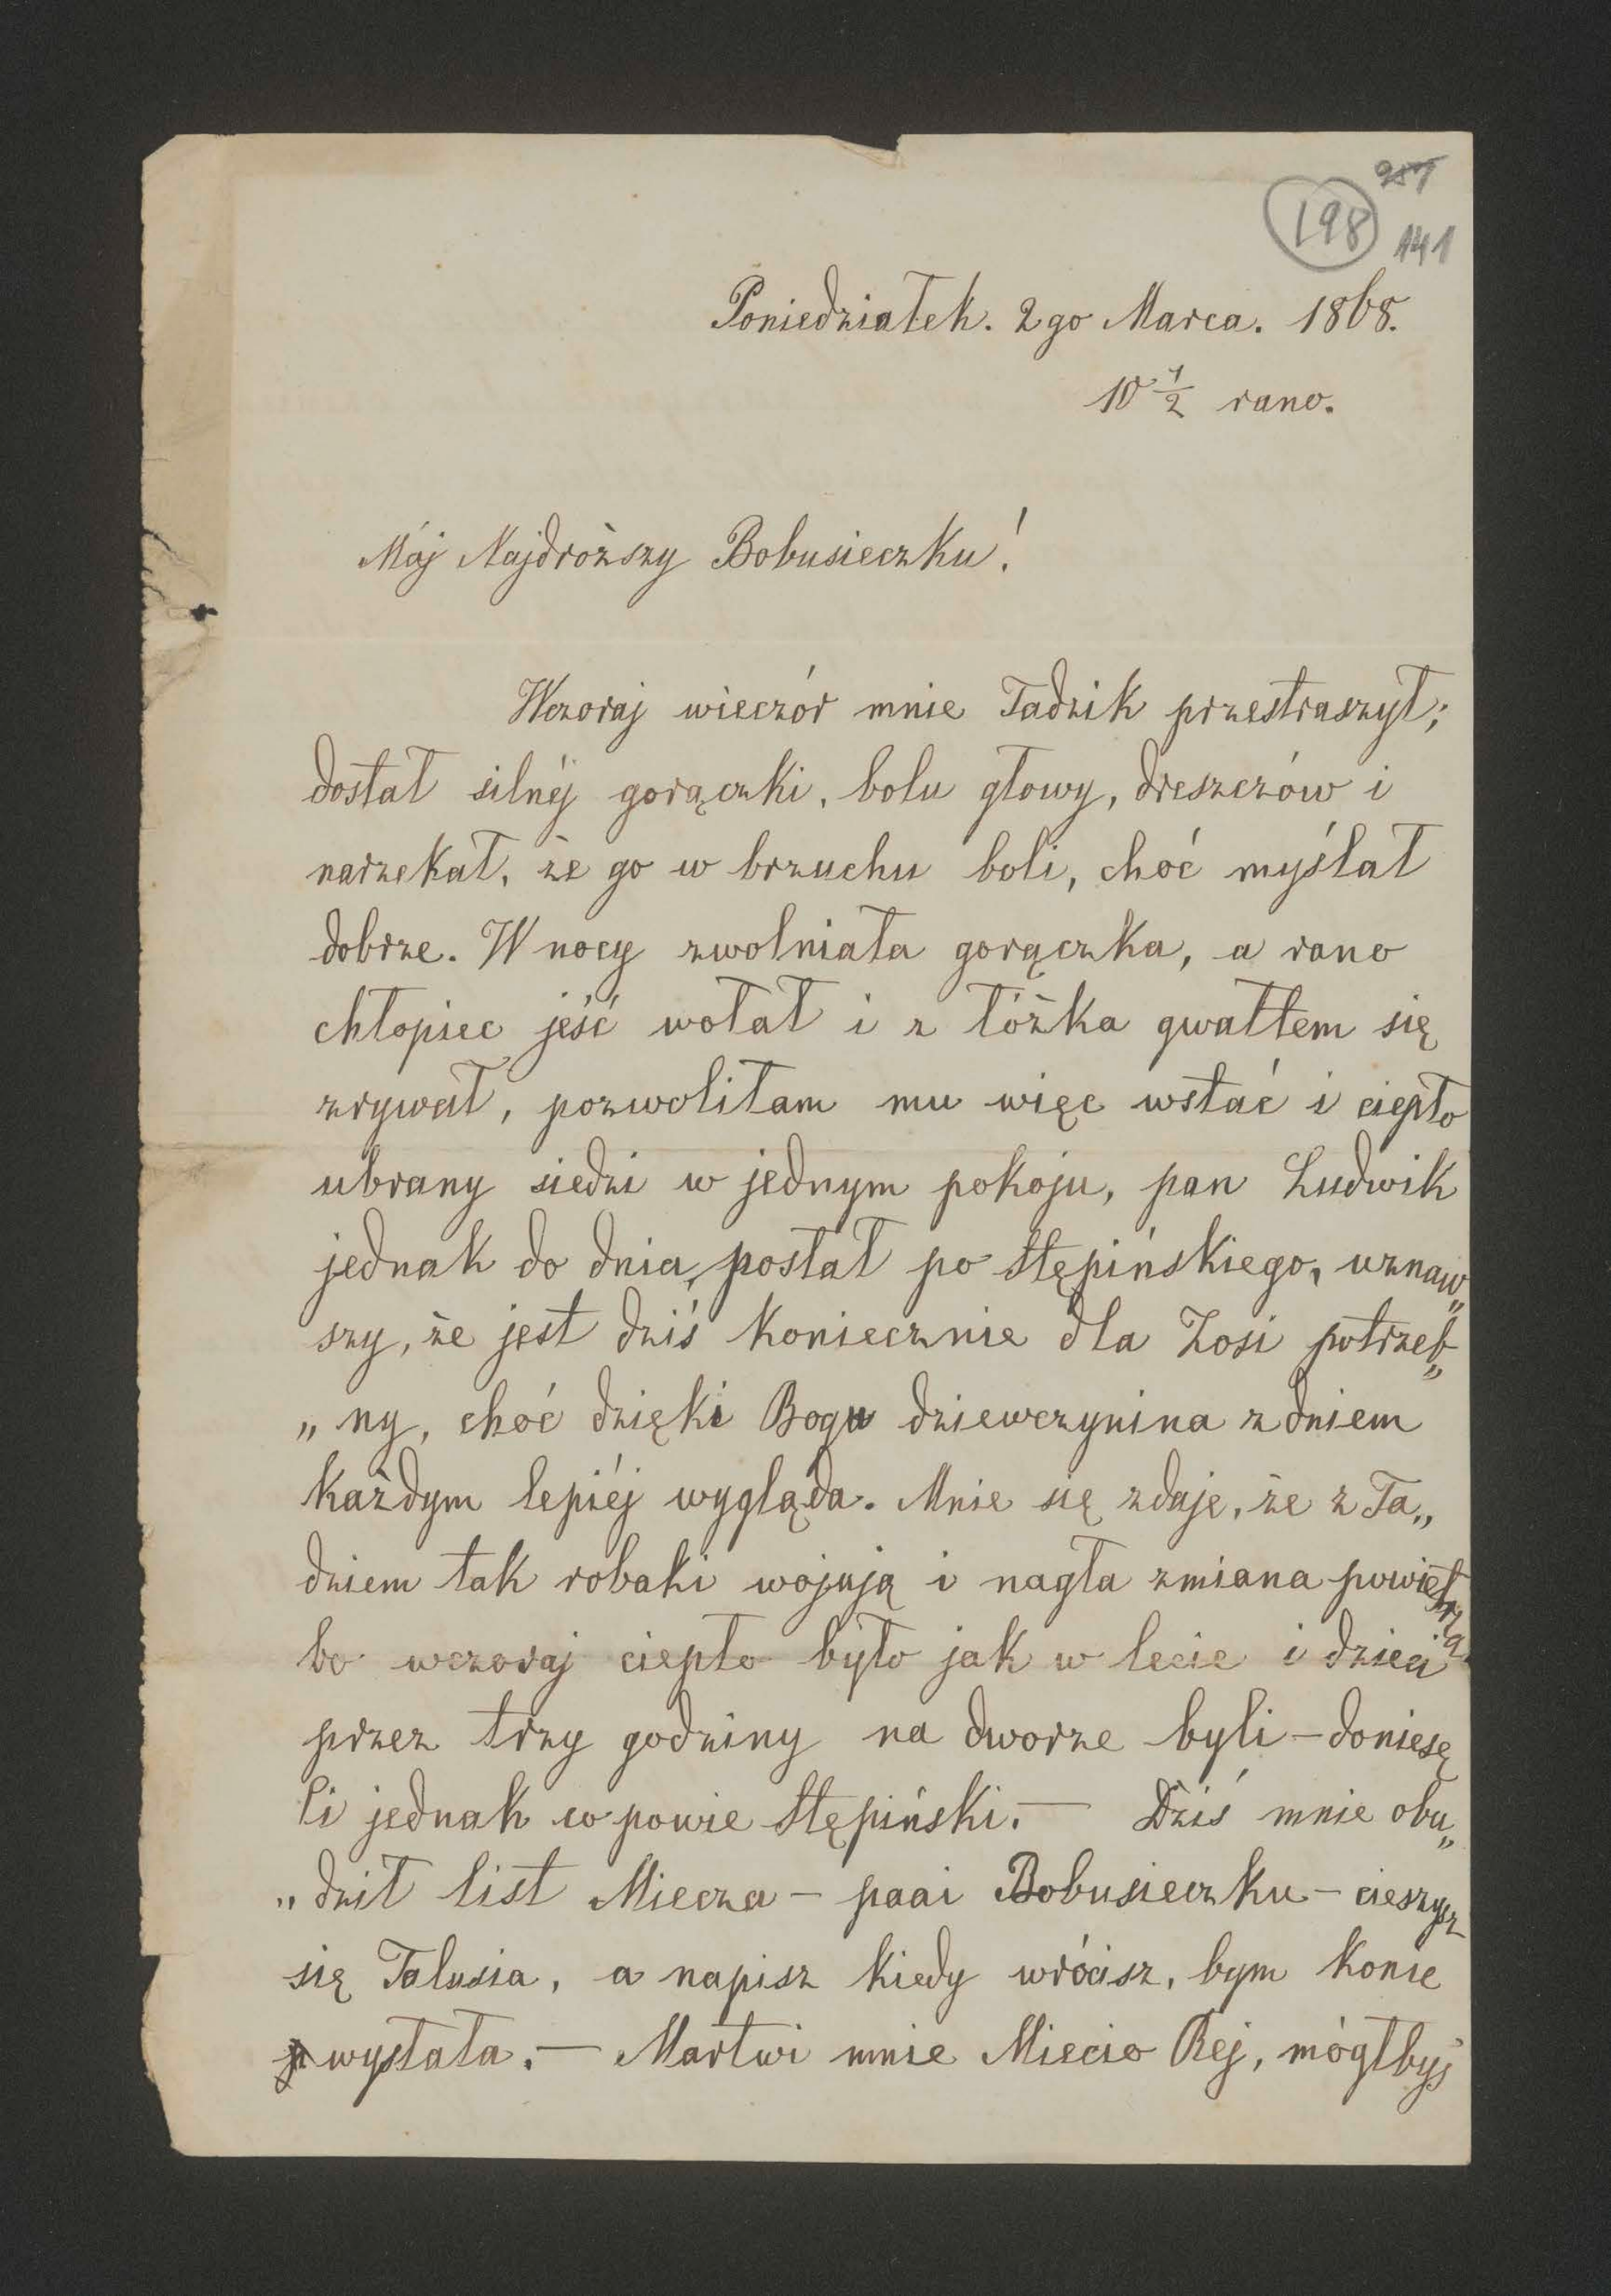 257
198
141
Poniedziałek. 2go Marca. 1868.
10 1/2 rano.
Mój Najdroższy Bobusieczku!
Wczoraj wieczór mnie Tadzik przestraszył;
dostał silnéj gorączki, bolu głowy, dreszczów i
narzekał, że go w brzuchu boli, choć myślał
dobrze. W nocy zwolniała gorączka, a rano
chłopiec jeść wołał i z łóżka gwałtem się
zrywał, pozwoliłam mu więc wstać i ciepło
ubrany siedzi w jednym pokoju, pan Ludwik
jednak do dnia, posłał po Stępińskiego, uznaw„
szy, że jest dziś koniecznie dla Zosi potrzeb„
„ny, choć dzięki Bogu dziewczynina z dniem
każdym lepiéj wygląda. Mnie się zdaje, że z Ta„
dziem tak robaki wojują i nagła zmiana powietrza
bo wczoraj ciepło było jak w lecie i dzieci
przez trzy godziny na dworze byli – doniesę
Ci jednak co powie Stępiński. — Dziś mnie obu„
„dził list Miecza – paai Bobusieczku – cieszysz
się Talusia, a napisz kiedy wrócisz, bym konie
wysłała. — Martwi mnie Miecio Rej, mógłbyś